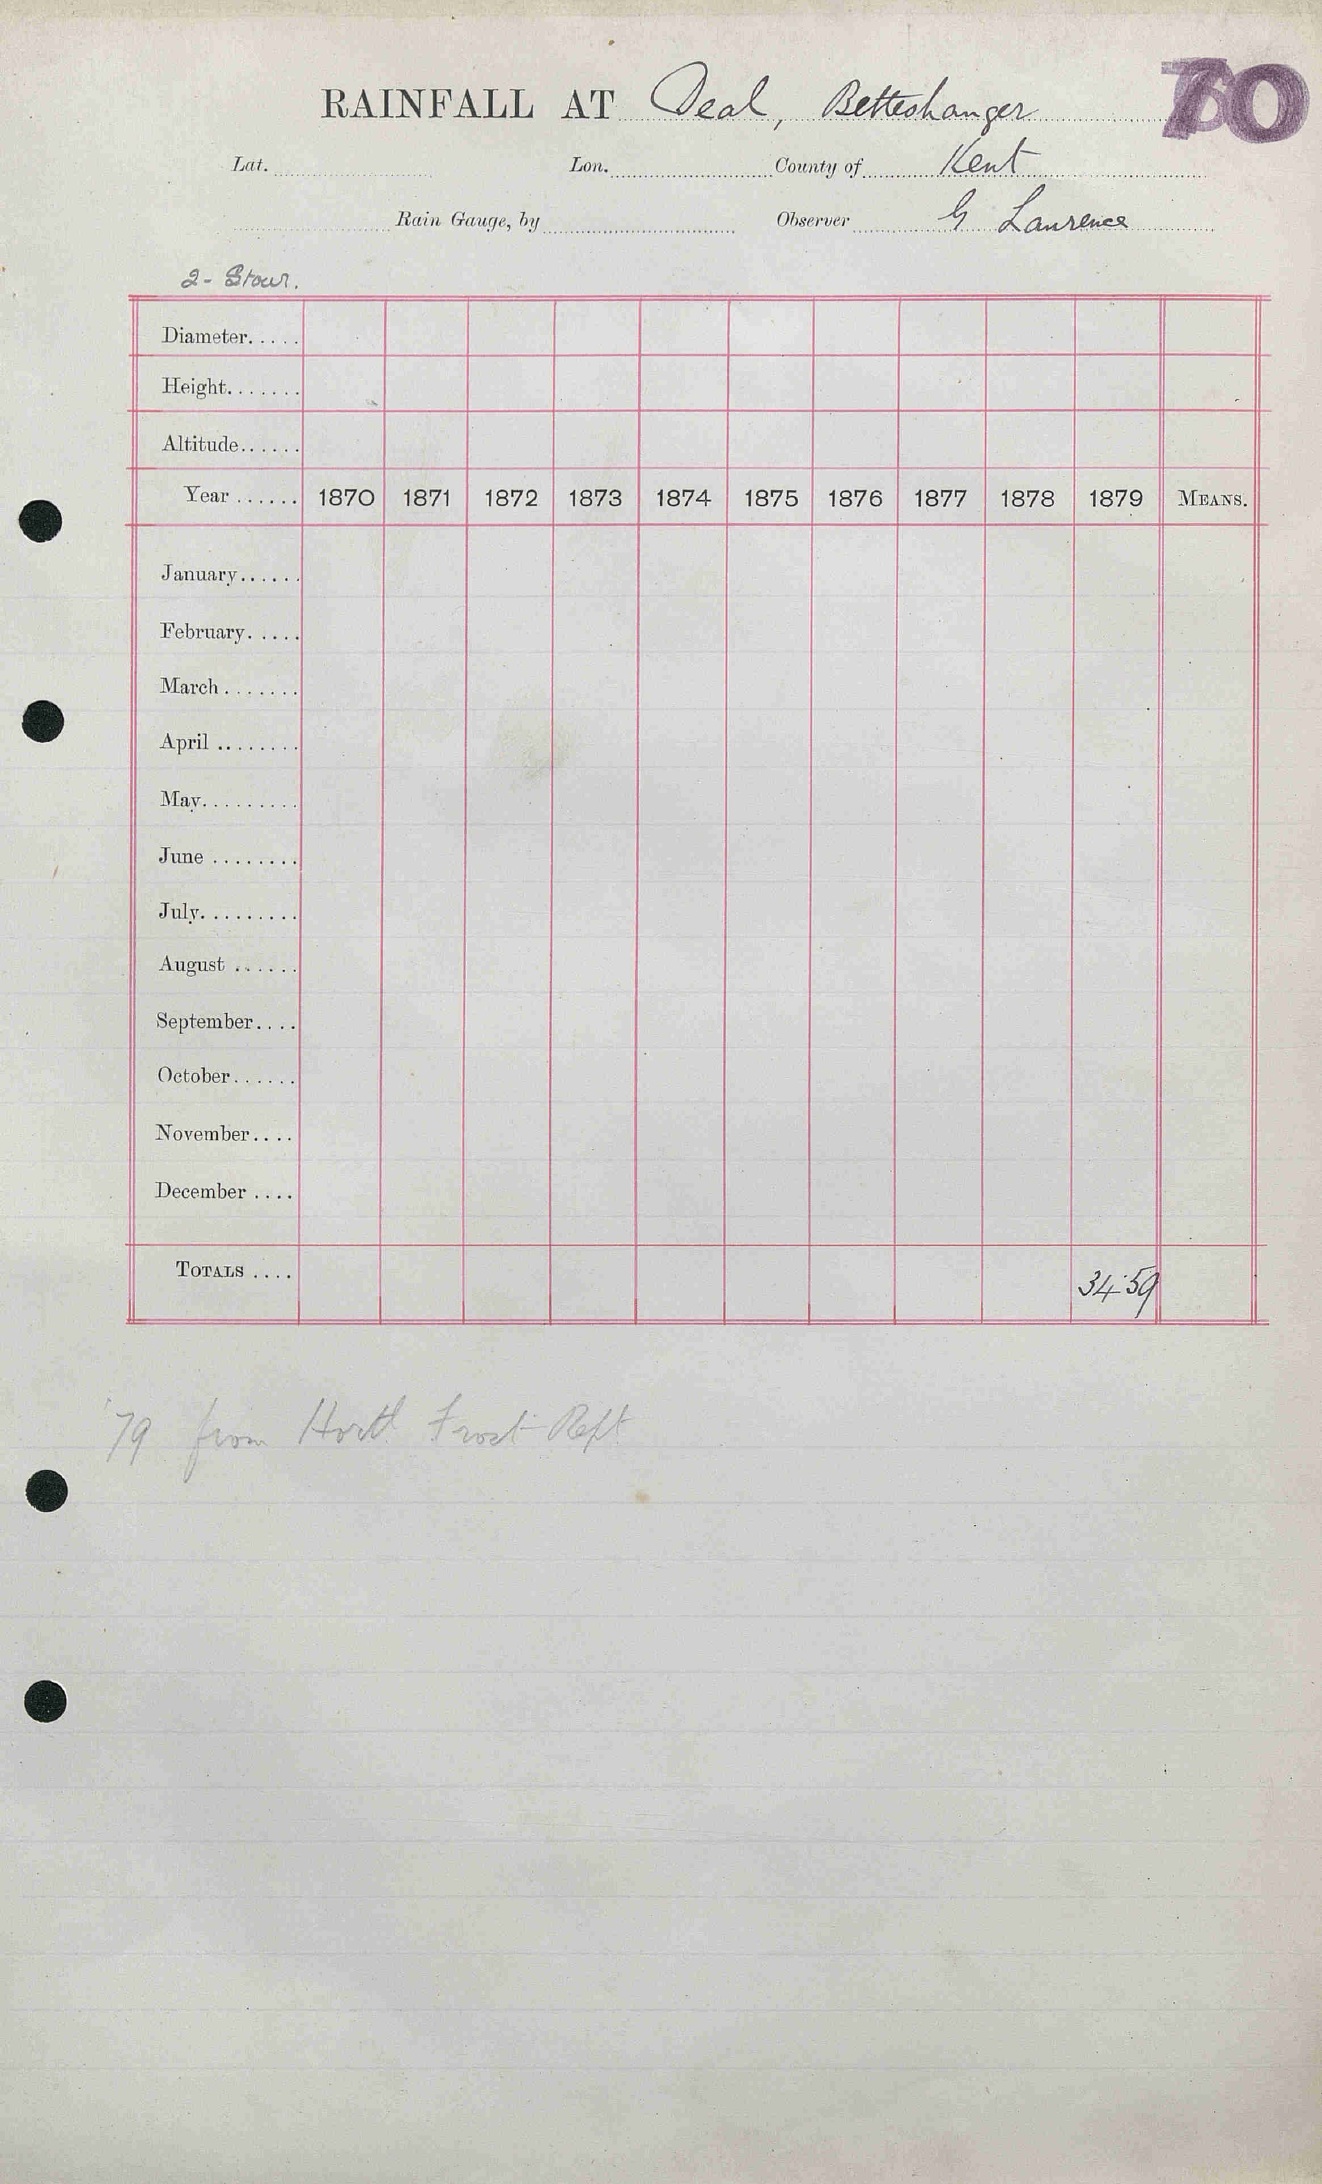 RAINFALL AT Deal, Betteshanger 70
Lat. Lon. County of Kent
Rain Gauge, by Observer G Laurence
2 - Stour.
Diameter.....
Height.......
Altitude......
Year ...... 1870 1871 1872 1873 1874 1875 1876 1877 1878 1879 MEANS.
January......
February.....
March.......
April ........
May.........
June ........
July.........
August ......
September....
October......
November....
December ....
TOTALS .... 34·59
'79 from Hortl Frost Rept